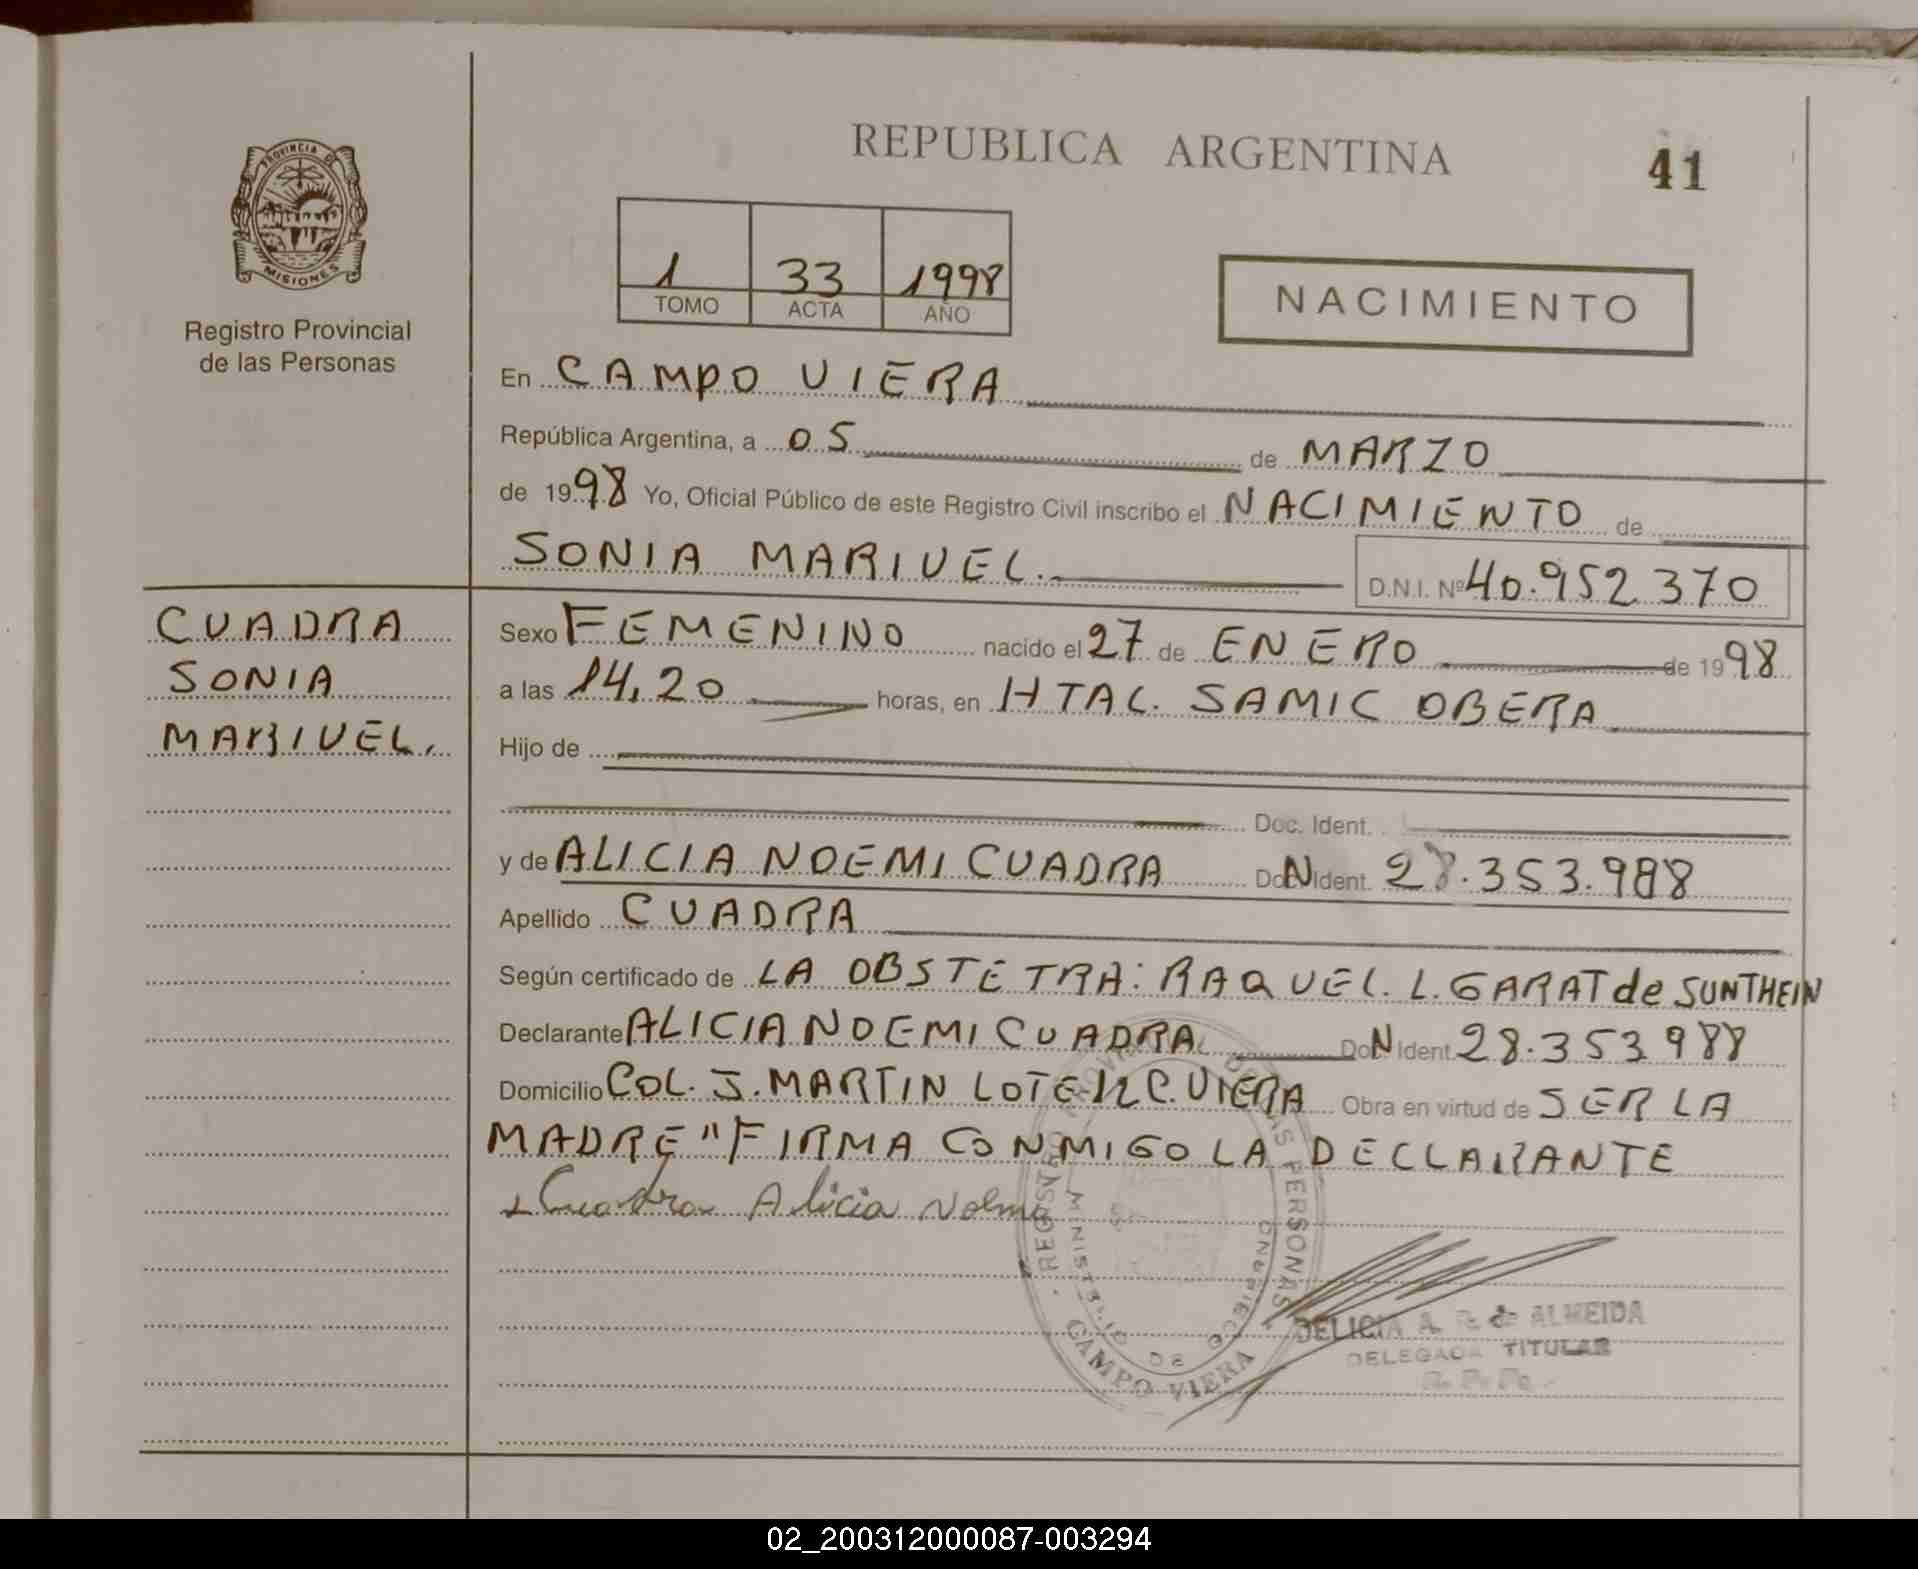 REPUBLICA ARGENTINA
41
PROVINCIA DE
MISIONES
Registro Provincial
de las Personas
1 33 1998
TOMO ACTA AÑO
NACIMIENTO
En CAMPO VIERA
República Argentina, a 05 de MARZO
de 1998 Yo, Oficial Público de este Registro Civil inscribo el NACIMIENTO de
SONIA MARIVEL. D.N.I. Nº 40.952370
CUADRA
SONIA
MARIVEL.
Sexo FEMENINO nacido el 27 de ENERO de 1998
a las 14,20 horas, en HTAL. SAMIC OBERA
Hijo de
Doc. Ident.
y de ALICIA NOEMI CUADRA DNI Ident. 28.353.988
Apellido CUADRA
Según certificado de LA OBSTETRA: RAQUEL. L. GARAT de SUNTHEIN
Declarante ALICIA NOEMI CUADRA DNI Ident. 28.353988
Domicilio COL. S. MARTIN LOTE 12 C. VIERA Obra en virtud de SER LA
MADRE "FIRMA CONMIGO LA DECLARANTE
Cuadra Alicia Noemi
PERSONAS
CAMPO VIERA
DELICIA A. de ALMEIDA
DELEGADA TITULAR
02_200312000087-003294